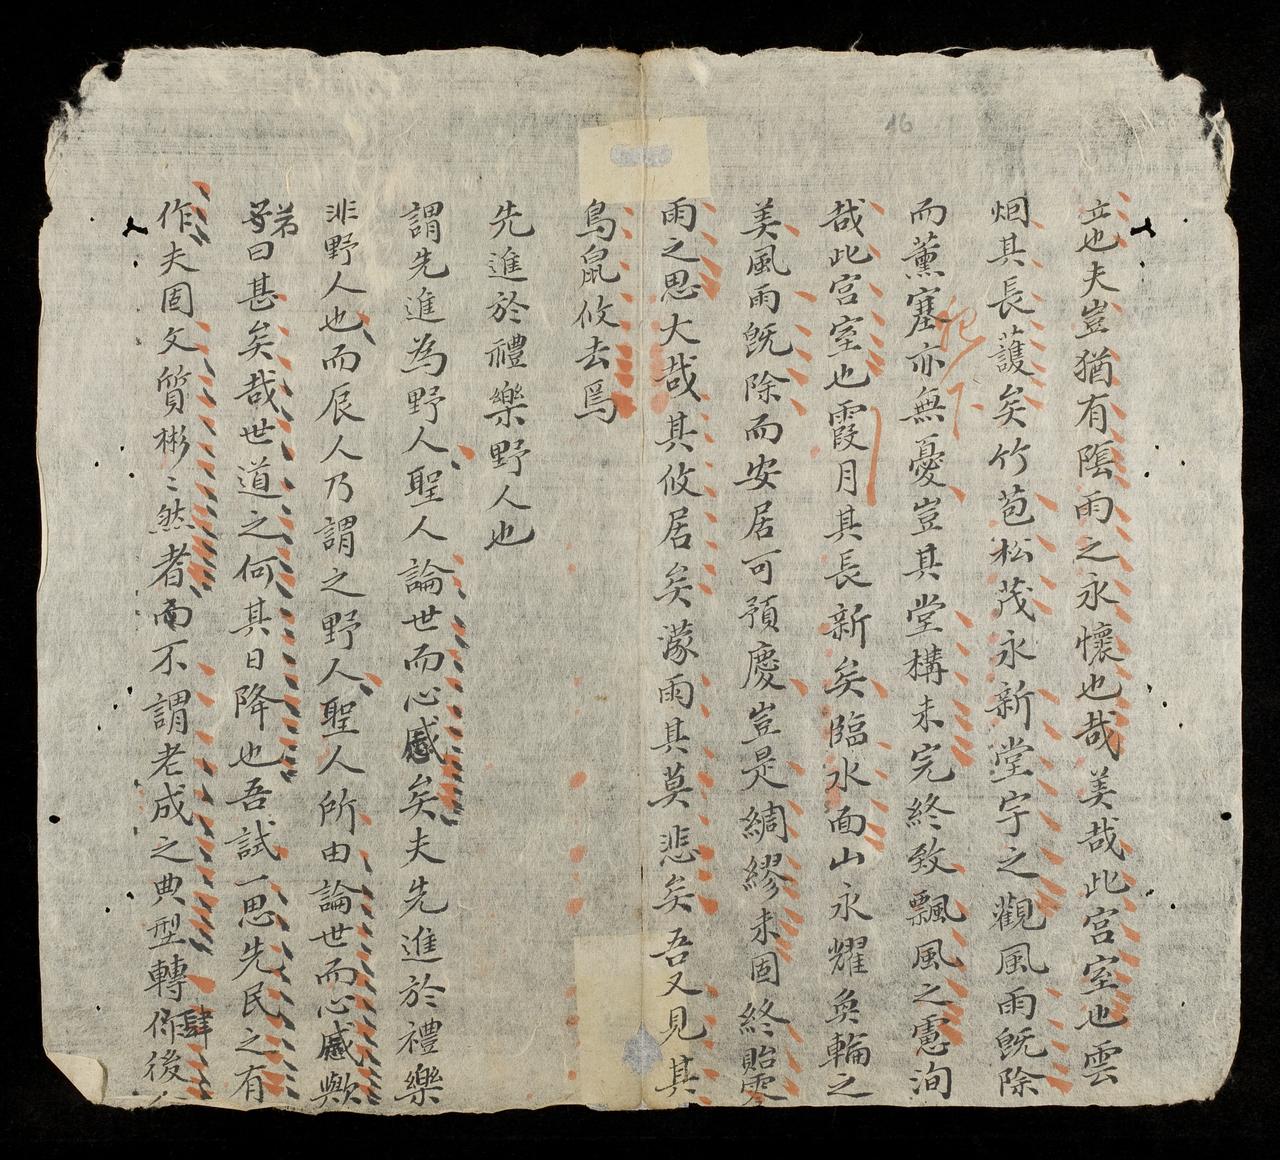 立也夫豈猶有陰雨之永懷也哉美哉此宮室也雲
烟其長護矣竹苞松茂永新堂宇之觀風雨既除
而薰塞亦無憂豈其堂構未完終致飄風之慮洵
哉此宮室也霞月其長新矣臨水面山永耀奐輪之
美風雨既除而安居可預慶豈是綢繆未固終貽零
雨之思大哉其攸居矣濛雨其莫悲矣吾又見其
鳥鼠攸去焉
先進於禮樂野人也
謂先進為野人聖人論世而心感矣夫先進於禮樂
非野人也而辰人乃謂之野人聖人所由論世而心感歟
弟曰甚矣哉世道之何其日降也吾試一思先民之有
作夫固文質彬〻然者而不謂老成之典型轉作後
肆
16